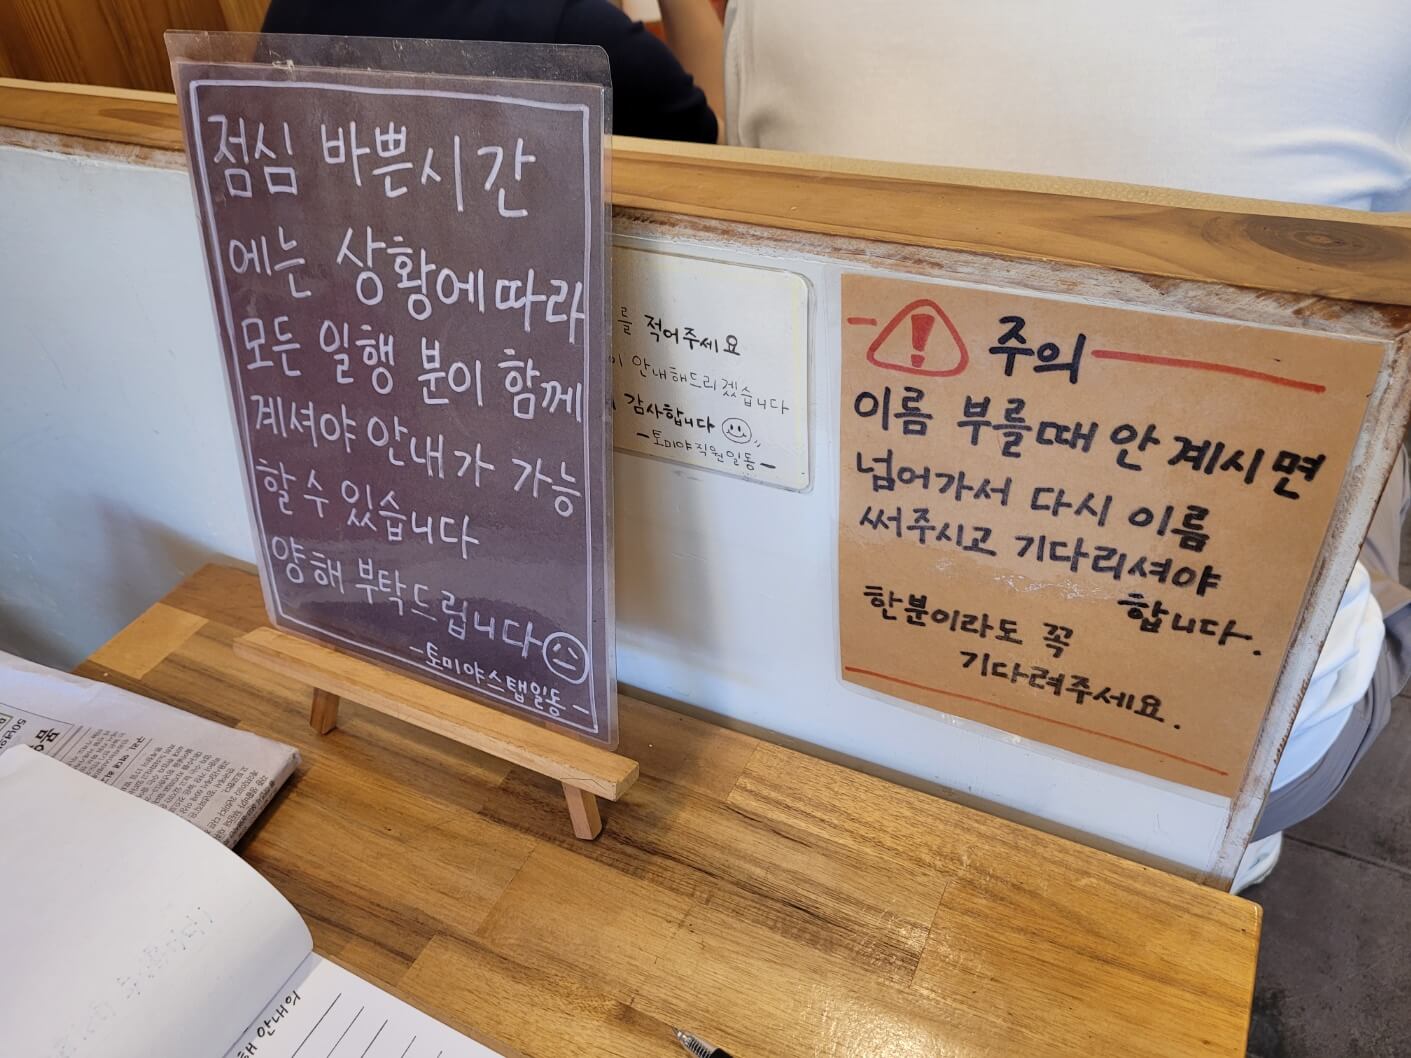 점심 바쁜시간
에는 상황에따라
모든 일행 분이 함께
계셔야 안내가 가능
할수 있습니다
양해 부탁드립니다
-토미야스탭일동-
를 적어주세요
안내해드리겠습니다
감사합니다
-토미야직원일동-
주의
이름 부를때 안 계시면
넘어가서 다시 이름
써주시고 기다리셔야
합니다.
한분이라도 꼭
기다려주세요.